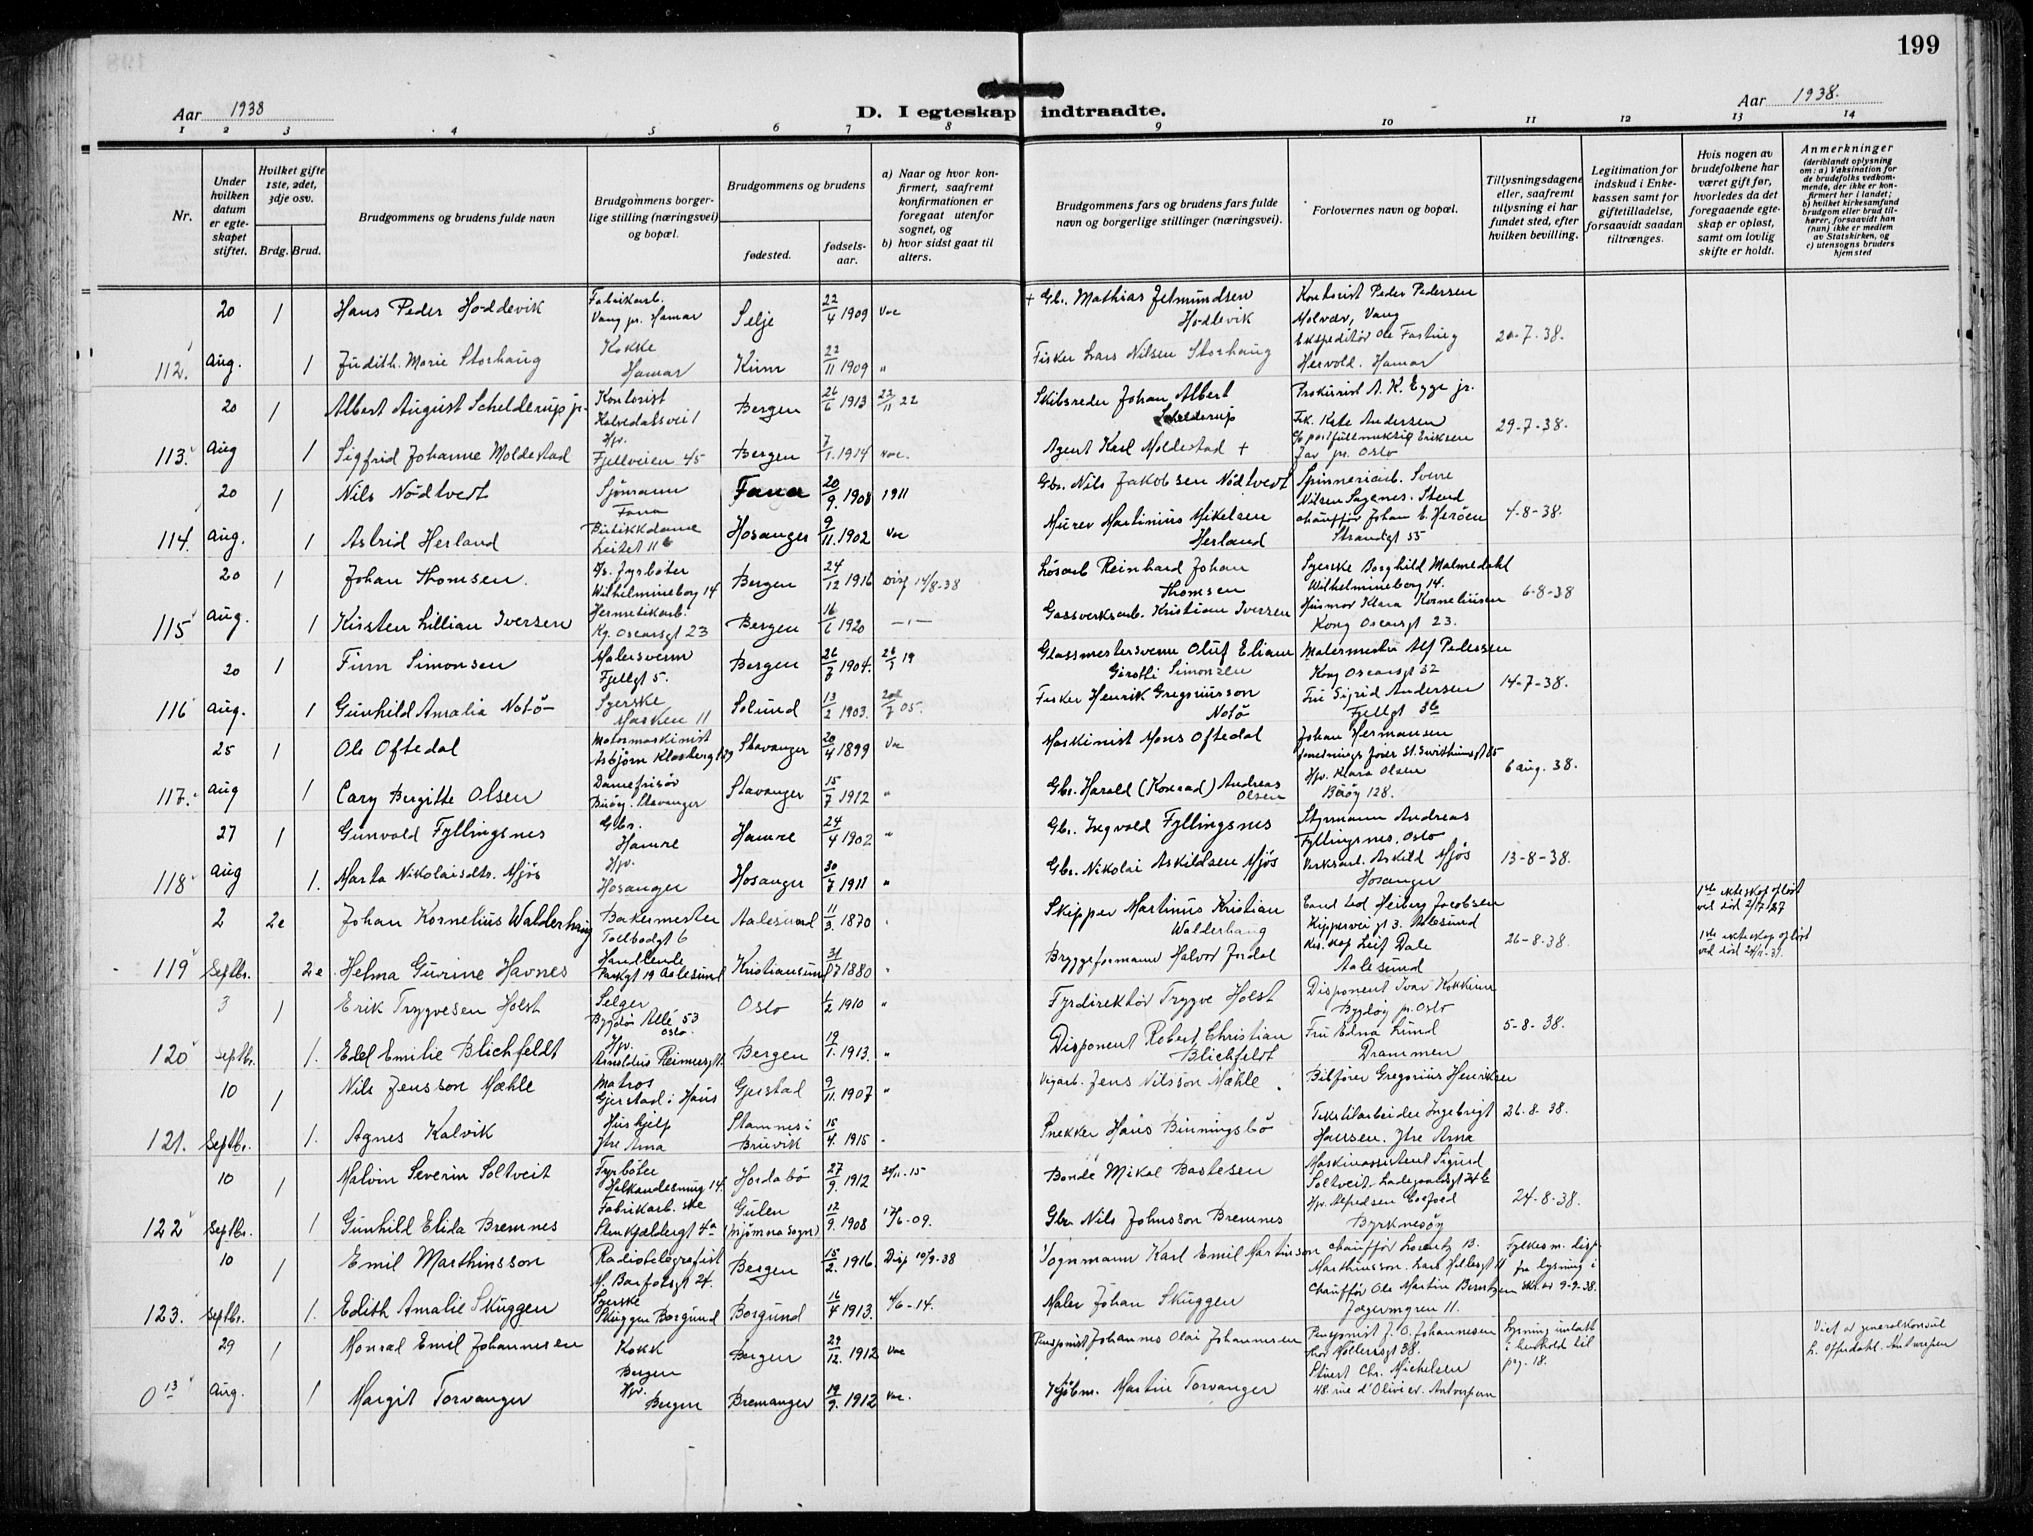 199
Aar 1938
D. I egteskap indtraadte.
Aar 1938.
1 2 3 4 5 6 7 8 9 10 11 12 13 14
Nr.
Under hvilken datum er egteskapet stiftet.
Hvilket gifte 1ste, 2det, 3dje osv.
Brdg. Brud.
Brudgommens og brudens fulde navn
Brudgommens borgerlige stilling (næringsvei) og bopæl.
Brudgommens og brudens
fødested.
fødselsaar.
a) Naar og hvor konfirmert, saafremt konfirmationen er foregaat utenfor sognet, og
b) hvor sidst gaat til alters.
Brudgommens fars og brudens fars fulde navn og borgerlige stillinger (næringsvei).
Forlovernes navn og bopæl.
Tillysningsdagene eller, saafremt tillysning ei har fundet sted, efter hvilken bevilling.
Legitimation for indskud i Enkekassen samt for giftetilladelse, forsaavidt saadan tiltrænges.
Hvis nogen av brudefolkene har været gift før, hvorledes da det foregaaende egteskap er opløst, samt om lovlig skifte er holdt.
Anmerkninger
(deriblandt oplysning om: a) Vaksination for de brudefolks vedkommende, der ikke er konfirmert her i landet; b) hvilket kirkesamfund brudgom eller brud tilhører, forsaavidt han (hun) ikke er medlem av Statskirken, og c) utensogns bruders hjemsted
20 1 Hans Peder Hoddevik Fabrikarb. Vang pr. Hamar Selje 22/4 1909 Vac + Gbr. Mathias Jetmundsen Hoddevik Kontorist Peder Pedersen Molvær, Vang
112. Aug. 1 Judith Marie Storhaug Kokke Hamar Kinn 22/11 1909 " Fisker Lars Nilsen Storhaug Ekspeditör Ole Hervold. Hamar 20-7-38.
20 1 Albert August Schelderup jr. Kontorist Kalvedalsvei 1 Bergen 26/6 1913 22/11 22 Skibsreder Johan Albert Schelderup Prokurist A. K. Egge jr.
113. Aug 1 Sigfrid Johanne Moldestad Hjv. Fjellveien 45 Bergen 7/1. 1914 Vac. Agent Karl Moldestad + Frk. Kate Andersen Jar pr. Oslo 29-7-38.
20 1 Nils Nödtvedt Sjömann Fana Fana 20/9. 1908 1911 Gbr. Nils Jakobsen Nödtvedt Spinneriarb. Sverre Nilsen Sagenes. Stend
114. Aug. 1 Astrid Herland Butikkdame Leitet 11 b Hosanger 9/11. 1902 Vac Murer Martinius Mikelsen Herland chauffør Johan E. Herøen Strandgt 55 4-8-38.
20 1 Johan Thomsen. Fyrböter Wilhelmineborg 14 Bergen 24/12 1916 Disp 14/8-38 Løsarb Reinhard Johan Thomsen Syerske Borghild Malmedahl Wilhelmineborg 14.
115 Aug. 1 Kirsten Lillian Iversen Hermetikarb. Kg. Oscarsgt 23 Bergen 16/6 1920 —"— Gassverksarb. Kristian Iversen Husmor Klara Korneliussen Kong Oscarsgt 23. 6-8-38
20 1 Finn Simonsen Malersvenn Fjellgt 5. Bergen 26/7 1904. 19 Glassmestersvenn Oluf Eliam Simonsen Malermester Alf Pedersen Kong Oscarsgt 32
116 Aug. 1 Gunhild Amalia Notö Syerske Marken 11 Solund 13/2 1903. 05. Fisker Henrik Gregoriusson Notö Fru Sigrid Andersen Fjellgt 3b 14-7-38.
25 1 Ole Oftedal Motormaskinist Asbjörn Klostersgt 29 Stavanger 20/4 1899 Vac Maskinist Mons Oftedal Johan Hermansen St. Svithunsgt 85
117. Aug 1 Cary Bergitte Olsen Damefrisör Buöy. Stavanger Stavanger 15/7 1912 " Gbr. Harald (Konrad) Andreas Olsen Hjv. Klara Olsen Buöy 128. 6 aug. 38.
27 1 Gunvald Fyllingsnes Gbr. Hamre Hamre 24/4 1902 " Gbr. Ingvald Fyllingsnes Styrmann Andreas Fyllingsnes, Oslo
118 Aug 1. Marta Nikolaisdtr. Mjös Hjv. Hosanger Hosanger 30/7 1911 " Gbr. Nikolai Askildsen Mjös Verksarb. Askild Mjös Hosanger 13-8-38.
2 2e Johan Kornelius Walderhaug Bakermester Tollbodgt 6 Aalesund 11/3. 1870 Skipper Martinus Kristian Walderhaug Cand. Heiberg Jacobsen Aalesund 1ste ekteskap opløst ved död 2/7-27
119 Septbr. 2e Helma Gurine Havnes Handlende Parkgt 19 Aalesund Kristiansund 31/7 1880 " Bryggeformann Halvor Jordal Leif Dale Aalesund 26-8-38. 1ste ekteskap opløst ved död
3 1 Erik Trygvesen Holst Selger Bygdøy Allé 53 Oslo. Oslo 1/2 1910 " Fyrdirektör Trygve Holst Disponent Ivar Bygdöy pr. Oslo
120 Septbr. 1. Edel Emilie Blichfeldt Hjv. Arnoldus Reimersgt. Bergen 19/1. 1913. " Disponent Robert Christian Blichfeldt Fru Edna Lund Drammen 5-8-38.
10 1 Nils Jensson Mæhle Matros Gjerstad i Haus Gjerstad 9/11. 1907 " Vegarb. Jens Nilsson Mæhle Bilfører Gregorius Henriksen
121. Septbr. 1. Agnes Kalvik Hushjelp Ytre Arna Stamnes i Bruvik 15/4. 1915 Snekker Hans Binningsbö Tekstilarbeider Ingebrigt Hansen. Ytre Arna 26-8-38.
10 1 Malvin Severin Soltveit Fyrböter Halkandesmug 14. Hordabö 27/9. 1912 -15 Bonde Mikal Bastesen Maskinassistent Sigurd Soltveit. Ladegaardsgt 24b
122 Septbr. 1 Gunhild Elida Bremnes Fabrikarb.ske Stenkjældergt 4a Gulen (Mjømna sogn) 12/9. 1908 /6-09. Gbr Nils Johnsson Bremnes Hjv Alfredsen Byrknesöy 24-8-38.
10 1 Emil Marthinsson Radiotelegrafist M. Barfotsgt 24. Bergen 15/2. 1916 Disp 10/9-38 Vognmann Karl Emil Martinson chauffør Lorentz B. Marthinsson. Lars Hillesgt 11 Fylkesm. disp. fra lysning i
123. Septbr. 1. Edith Amalie Skuggen Syerske Skuggen Borgund Borgund 16/4 1913. /6-14. Maler Johan Skuggen Chauffør Ole Martin Berntzen Jægermyren 11. skr av 9-9-38.
29 1 Monrad Emil Johannesen Kokk Bergen Bergen 29/12. 1912 Vac Pensjonist Johannes Olai Johannesen Pensjonist J. O. Johannesen Thor Möllersgt 38. Lysning unlatt i henhold til prg. 18. Viet av generalkonsul L. Oppedahl. Antwerpen
0 13 Aug. 1 Margit Torvanger Hjv. Bergen Bremanger 19/9. 1912 Vac. Kjöbm. Martin Torvanger Stuert Chr. Michelsen 48 rue d'Olivier. Antwerpen